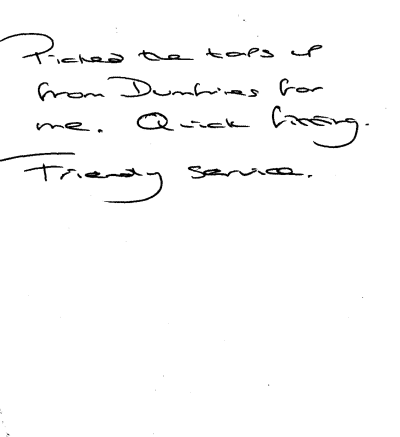 Picked the taps up
from Dumfries for
me. Quick fitting.
Friendly service.